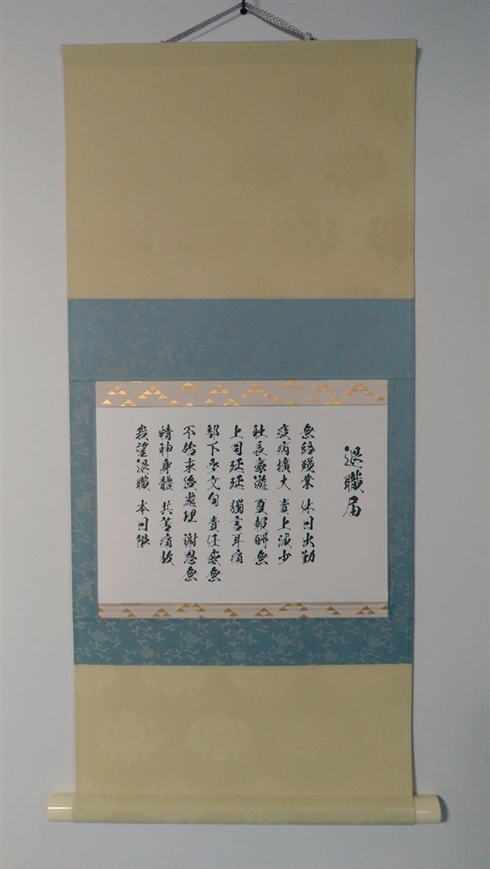 退職届
無給殘業 休日出勤
疫病擴大 賣上減少
社長豪遊 夏報酬無
上司延延 獨言耳痛
部下文句 責任感無
不始末後處理 謝恩無
精神身體 共苦痛故
我望退職 本日限